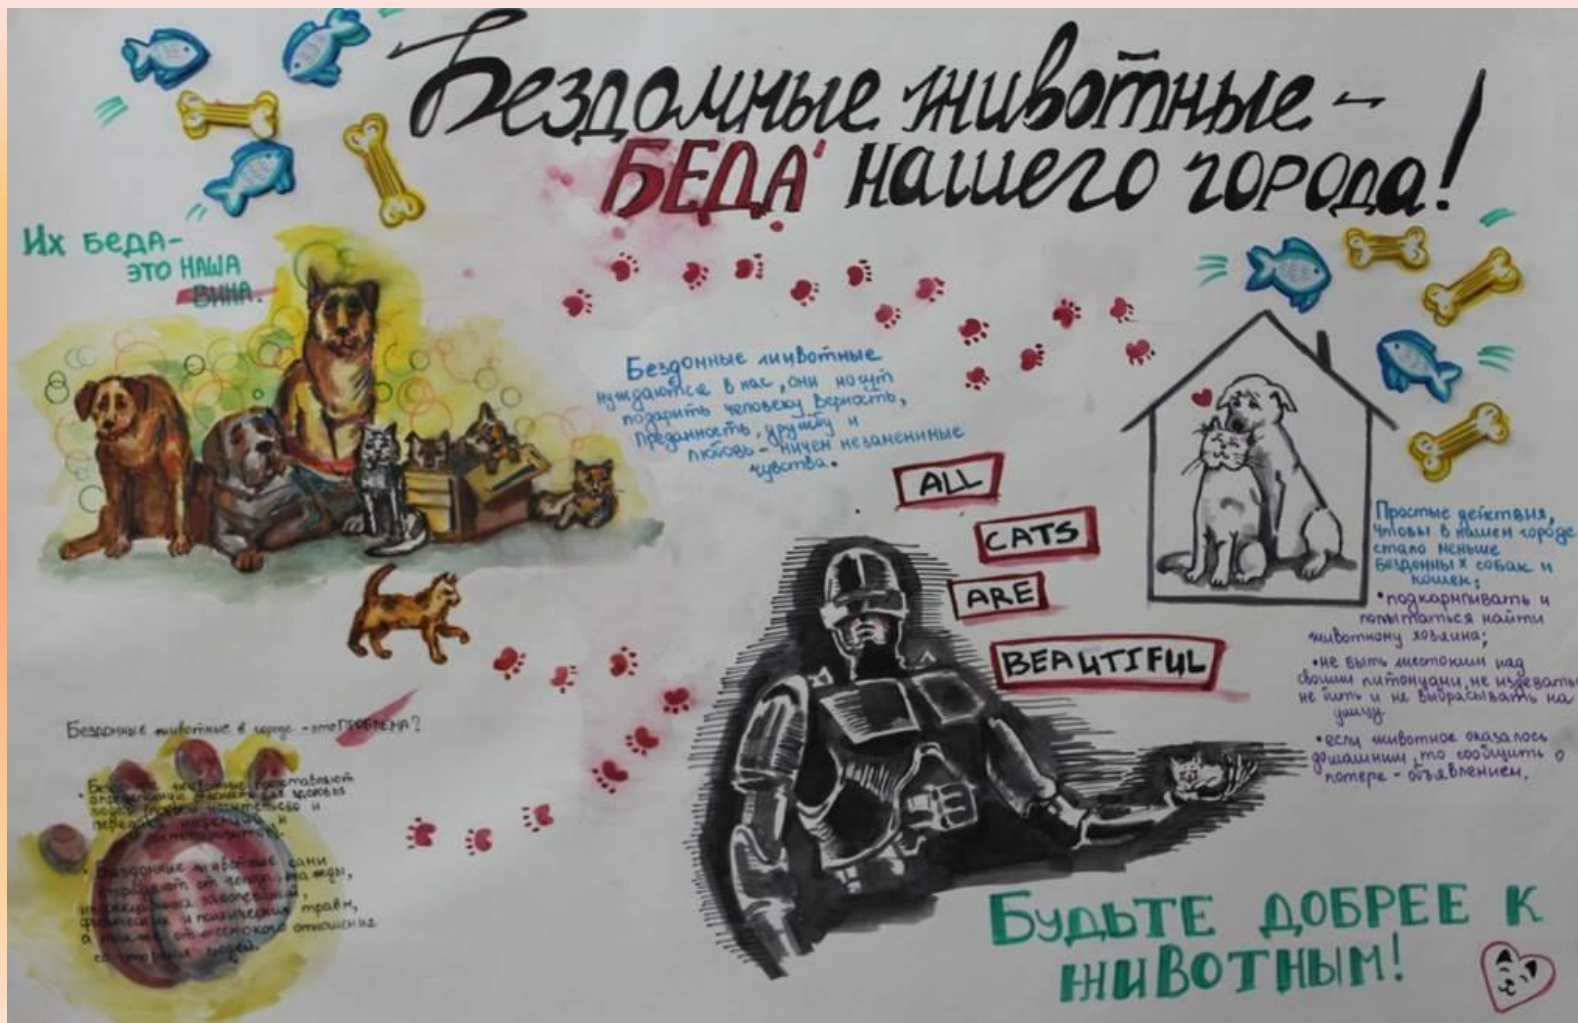 Бездомные животные -
БЕДА нашего города!
Их беда-
это наша
вина.
Бездомные животные
нуждаются в нас, они могут
подарить человеку верность,
преданность, дружбу и
любовь - ничем незаменимые
чувства.
ALL
CATS
ARE
BEAUTIFUL
Простые действия,
чтобы в нашем городе
стало меньше
бездомных собак и
кошек:
•подкармливать и
попытаться найти
животному хозяина;
•не быть жестоким над
своими питомцами, не издевать
не бить и не выбрасывать на
улицу
•если животное оказалось
домашним, то сообщить о
потере - объявлением.
Бездомные животные в городе - это ПРОБЛЕМА?
• животные представляют
здоровья
и
и
• Бездомные животные сами
страдают от голода, жажды,
заболеваний,
физических и психических травм,
а также от жестокого отношения
со стороны людей.
Будьте добрее к
животным!